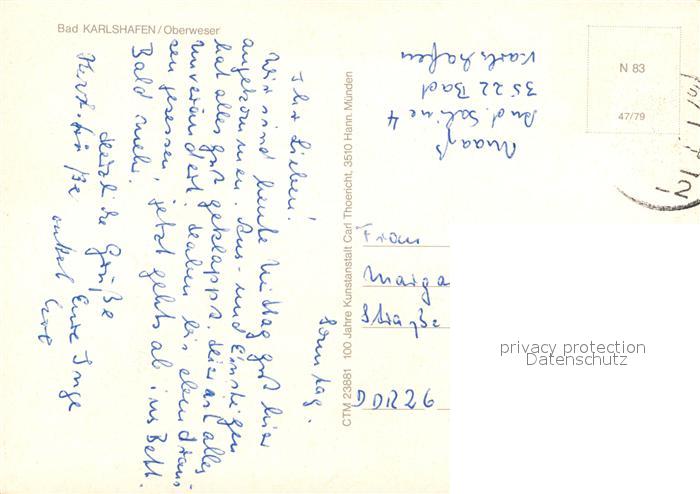 Bad KARLSHAFEN/Oberweser
Sonntag.
Ihr Lieben!
Wir sind heute Mittag gut hier
angekommen. Aus- und Einsteigen
hat alles gut geklappt. Hier ist alles
unverändert. Haben bis eben draus-
sen gesessen, jetzt geht's ab ins Bett.
Bald mehr.
Herzliche Grüße
Eure Inge
Herzl. Grüße Onkel
CTM 23881 100 Jahre Kunstanstalt Carl Thoericht, 3510 Hann. Münden
Maaß
And. Saline 4
3522 Bad
Karlshafen
N 83
47/79
Frau
Marga
Straße
DDR 26
privacy protection
Datenschutz